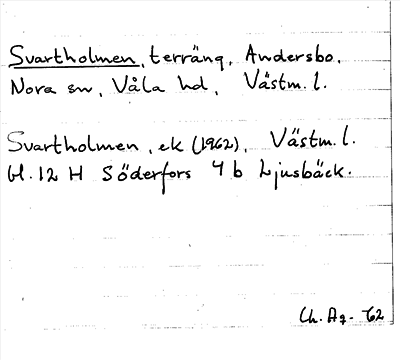 Svartholmen, terräng, Andersbo.
Nora sn, Våla hd, Västm. l.
Svartholmen, ek (1962), Västm. l.
bl. 12 H Söderfors 4 b Ljusbäck.
Ch. Ag- 62